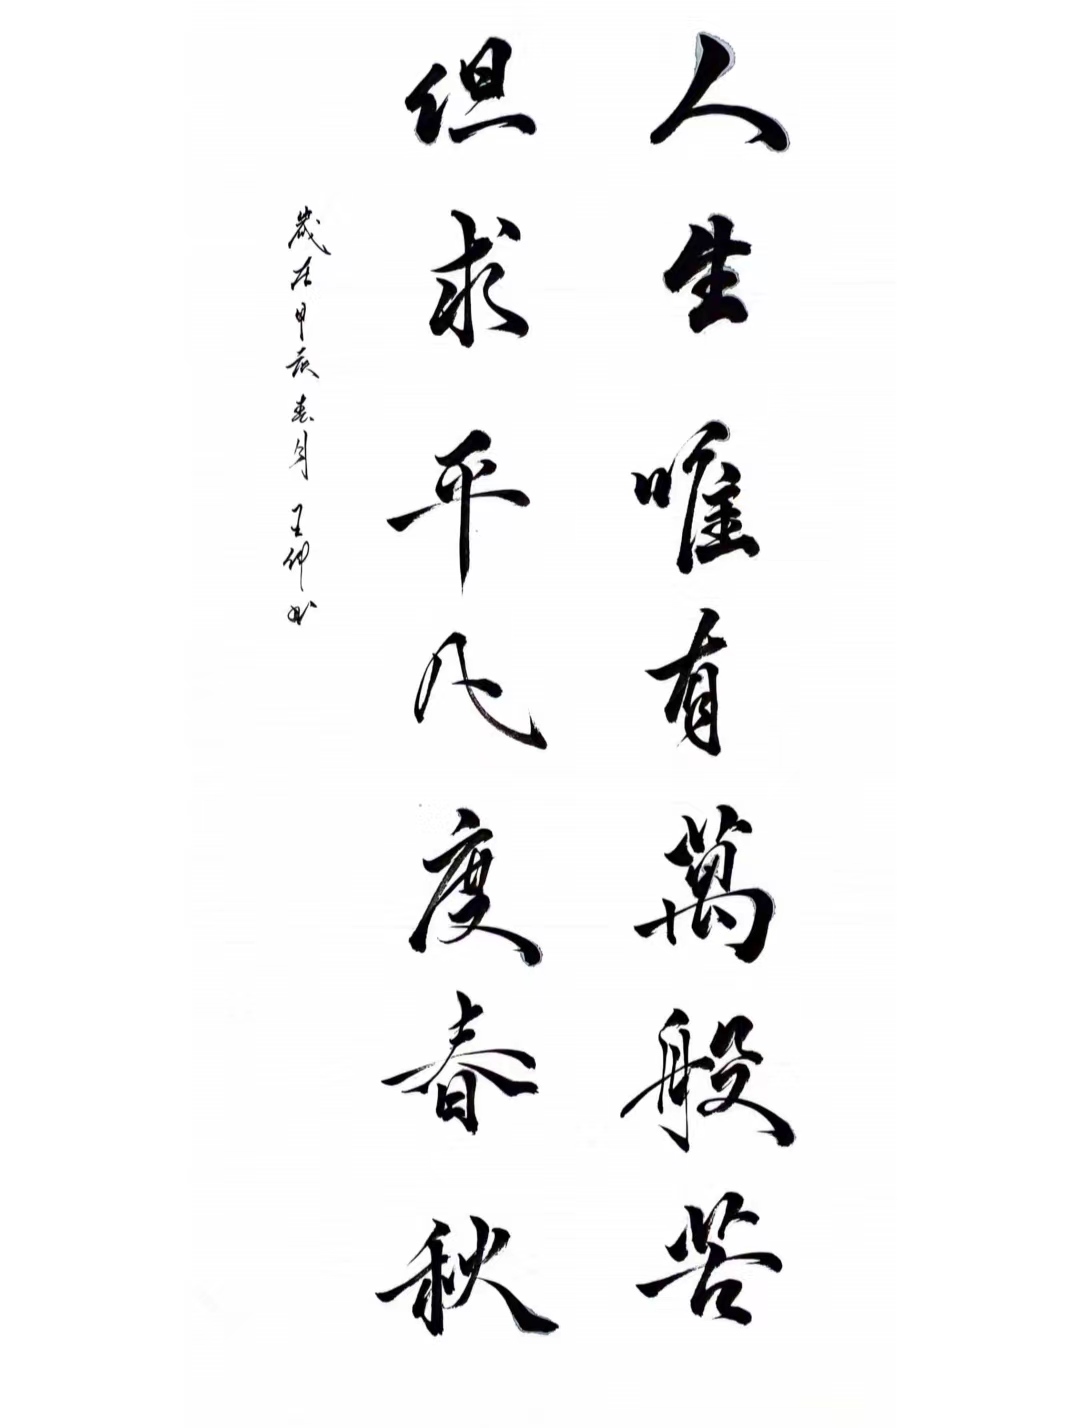 人生唯有萬般苦
但求平凡度春秋
歲在甲辰春月王仰书